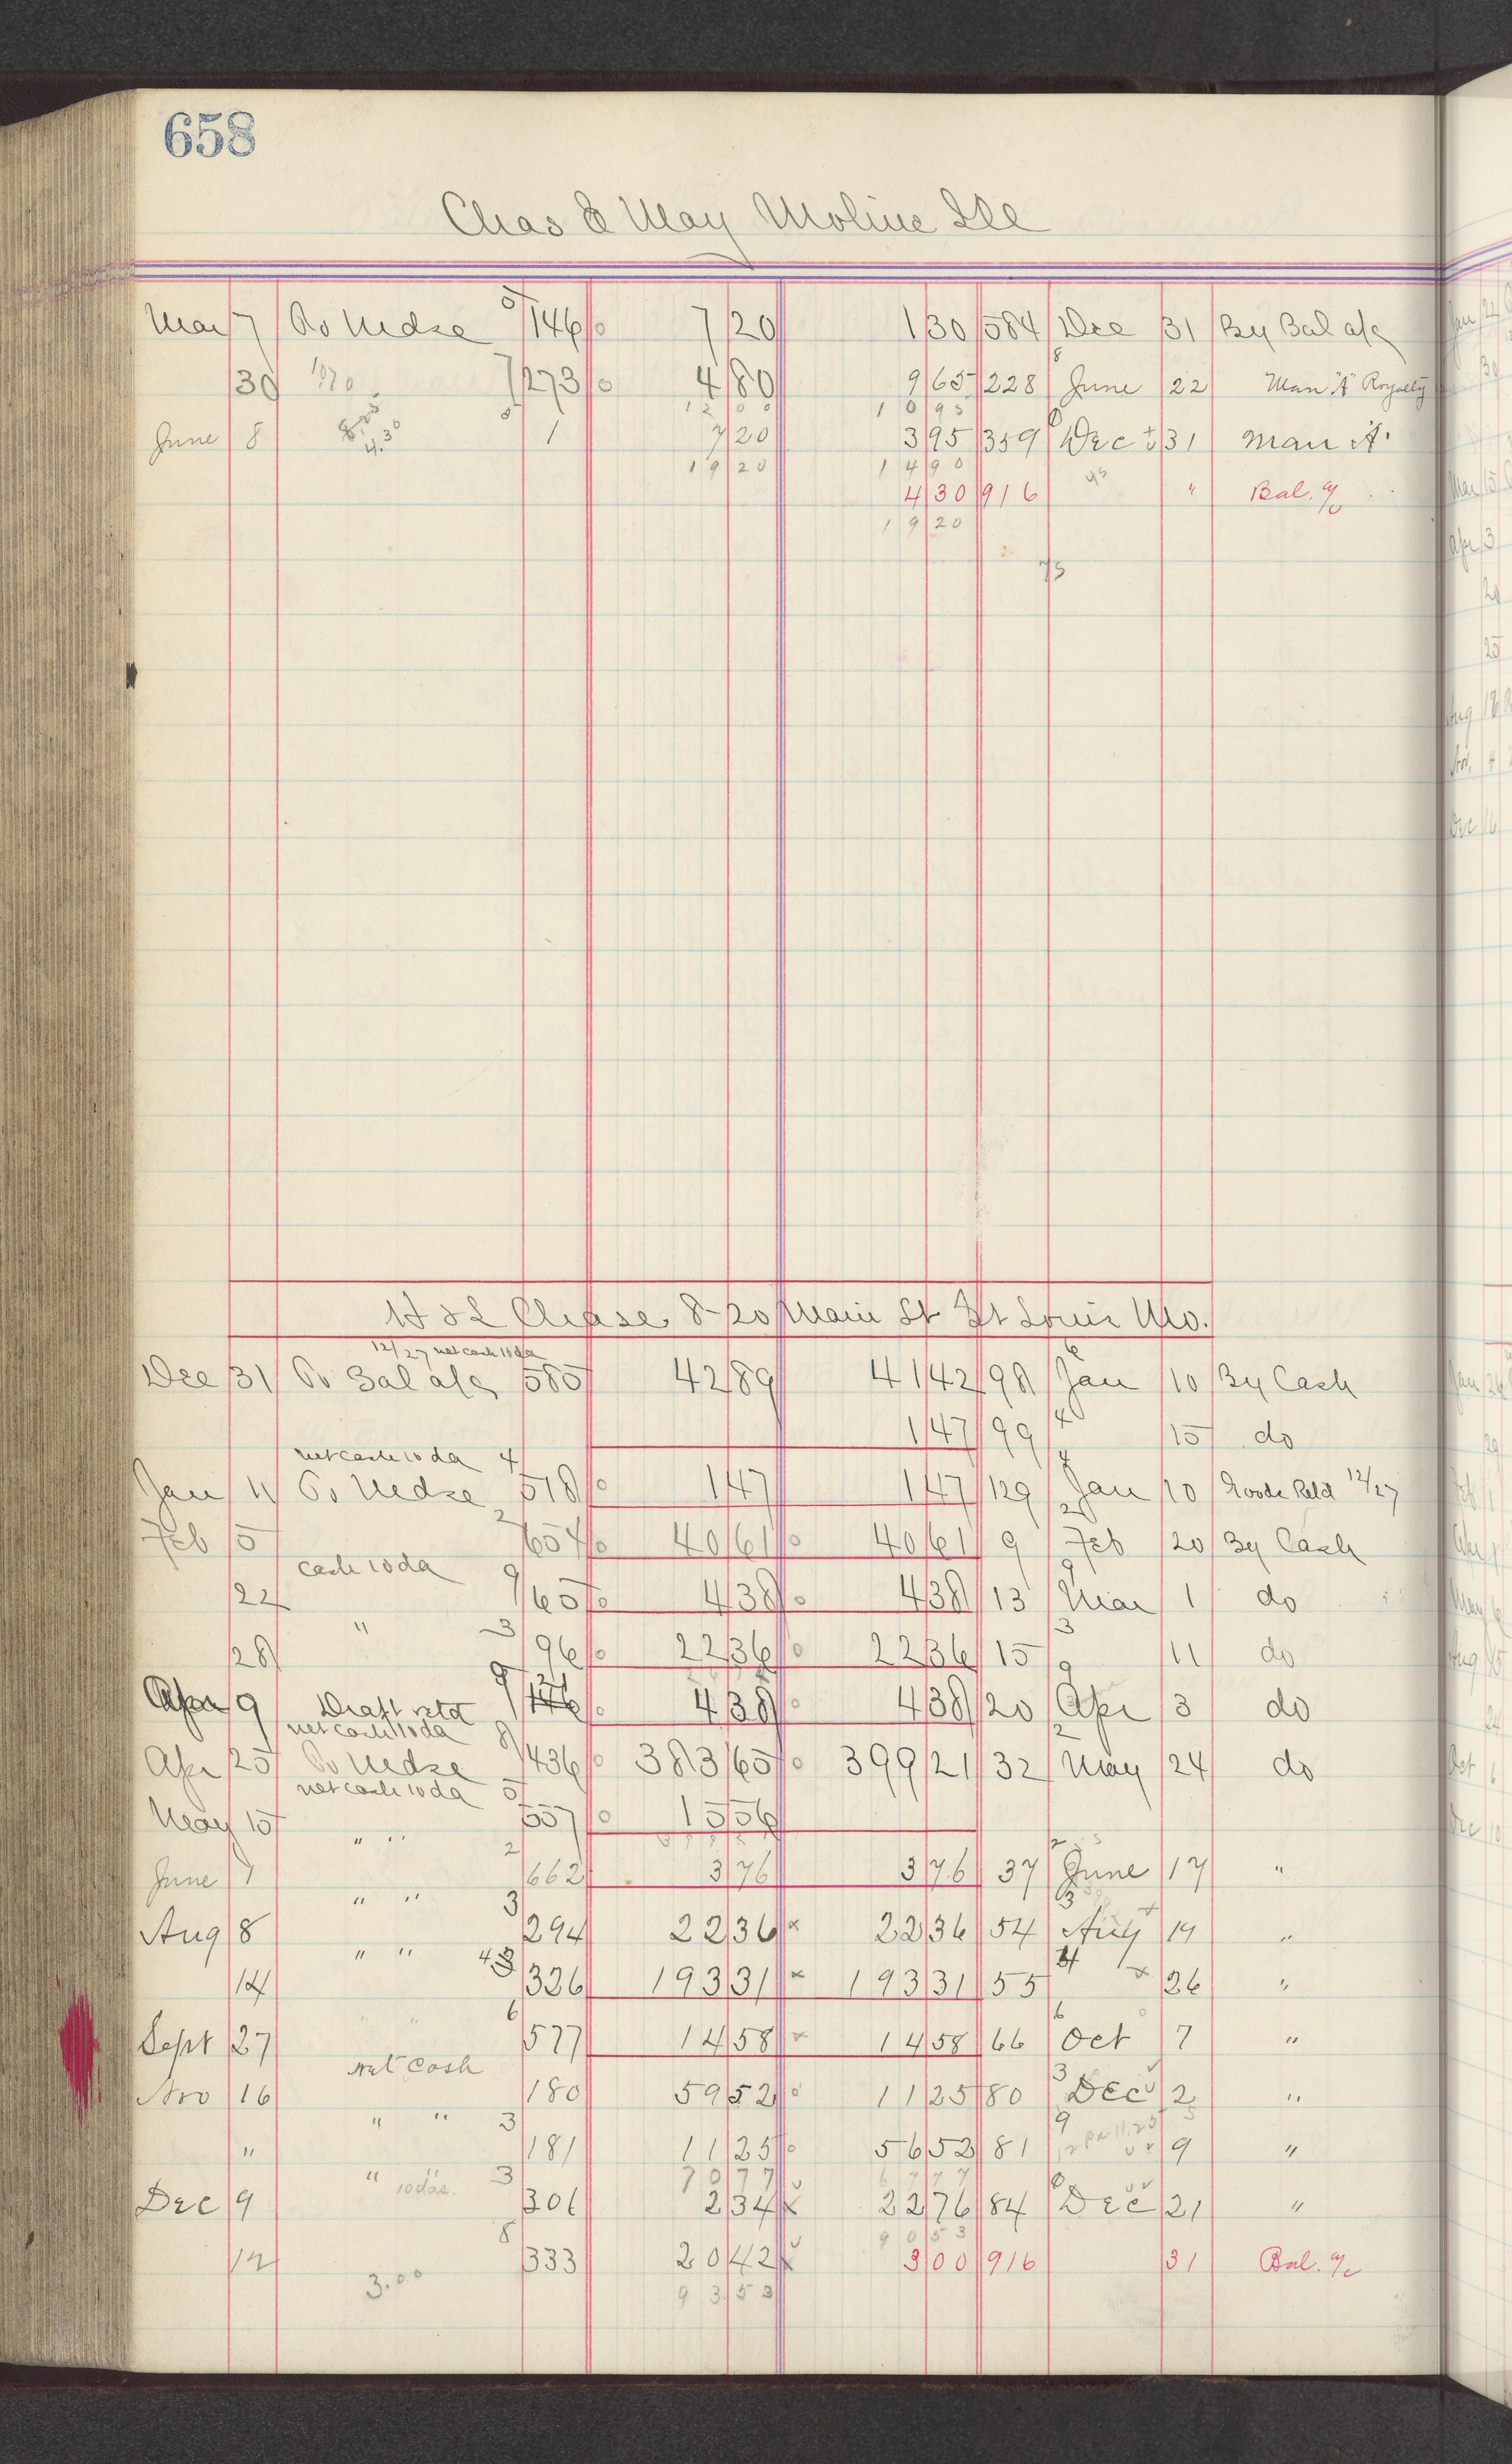 658
Chas E May Moline Ill
Mar 7 To Mdse 5 146 0 7 20 1 30 584 Dec 31 By Bal a/c
30 7 273 0 4 80 9 65 228 8 June 22 Man "A" Royalty
12 00 10 95
June 8 8.25 4.30 5 1 7 20 3 95 359 Dec 31 Man "A"
19 20 14 90
4 30 916 " Bal. a/c
19 20
75
H & L Chase 8-20 Main St St Louis Mo.
12/27 net cash 10 da
Dec 31 To Bal a/c 585 42 89 41 42 98 6 Jan 10 By Cash
1 47 99 4 15 do
net cash 10 da 4
Jan 11 To Mdse 518 0 1 47 1 47 129 4 Jan 10 Goods Retd 12/27
Feb 5 2 654 0 40 61 0 40 61 9 2 Feb 20 By Cash
cash 10 da
22 9 65 0 4 38 0 4 38 13 9 Mar 1 do
28 " 3 96 0 22 36 0 22 36 15 3 11 do
Apr 9 Draft retd 9 4 38 0 4 38 20 9 Apr 3 do
net cash 10 da
Apr 25 To Mdse 8 436 0 383 65 0 399 21 32 2 May 24 do
net cash 10 da
May 15 5 557 0 15 56
June 7 " " 2 662 3 76 3 76 37 2 June 17 "
Aug 8 " " 3 294 22 36 x 22 36 54 3 Aug 19 "
14 " " 326 193 31 x 193 31 55 4 x 26 "
Sept 27 " " 6 577 14 58 x 14 58 66 6 Oct 7 "
net cash
Nov 16 180 59 52 0 11 25 80 3 Dec 2 "
" " " 3 181 11 25 0 56 52 81 9 9 "
70 77 67 77
Dec 9 " " 10 das. 3 306 2 34 x 22 76 84 Dec 21 "
90 53
12 8 333 20 42 x 3 00 916 31 Bal. a/c
3.00 93 53